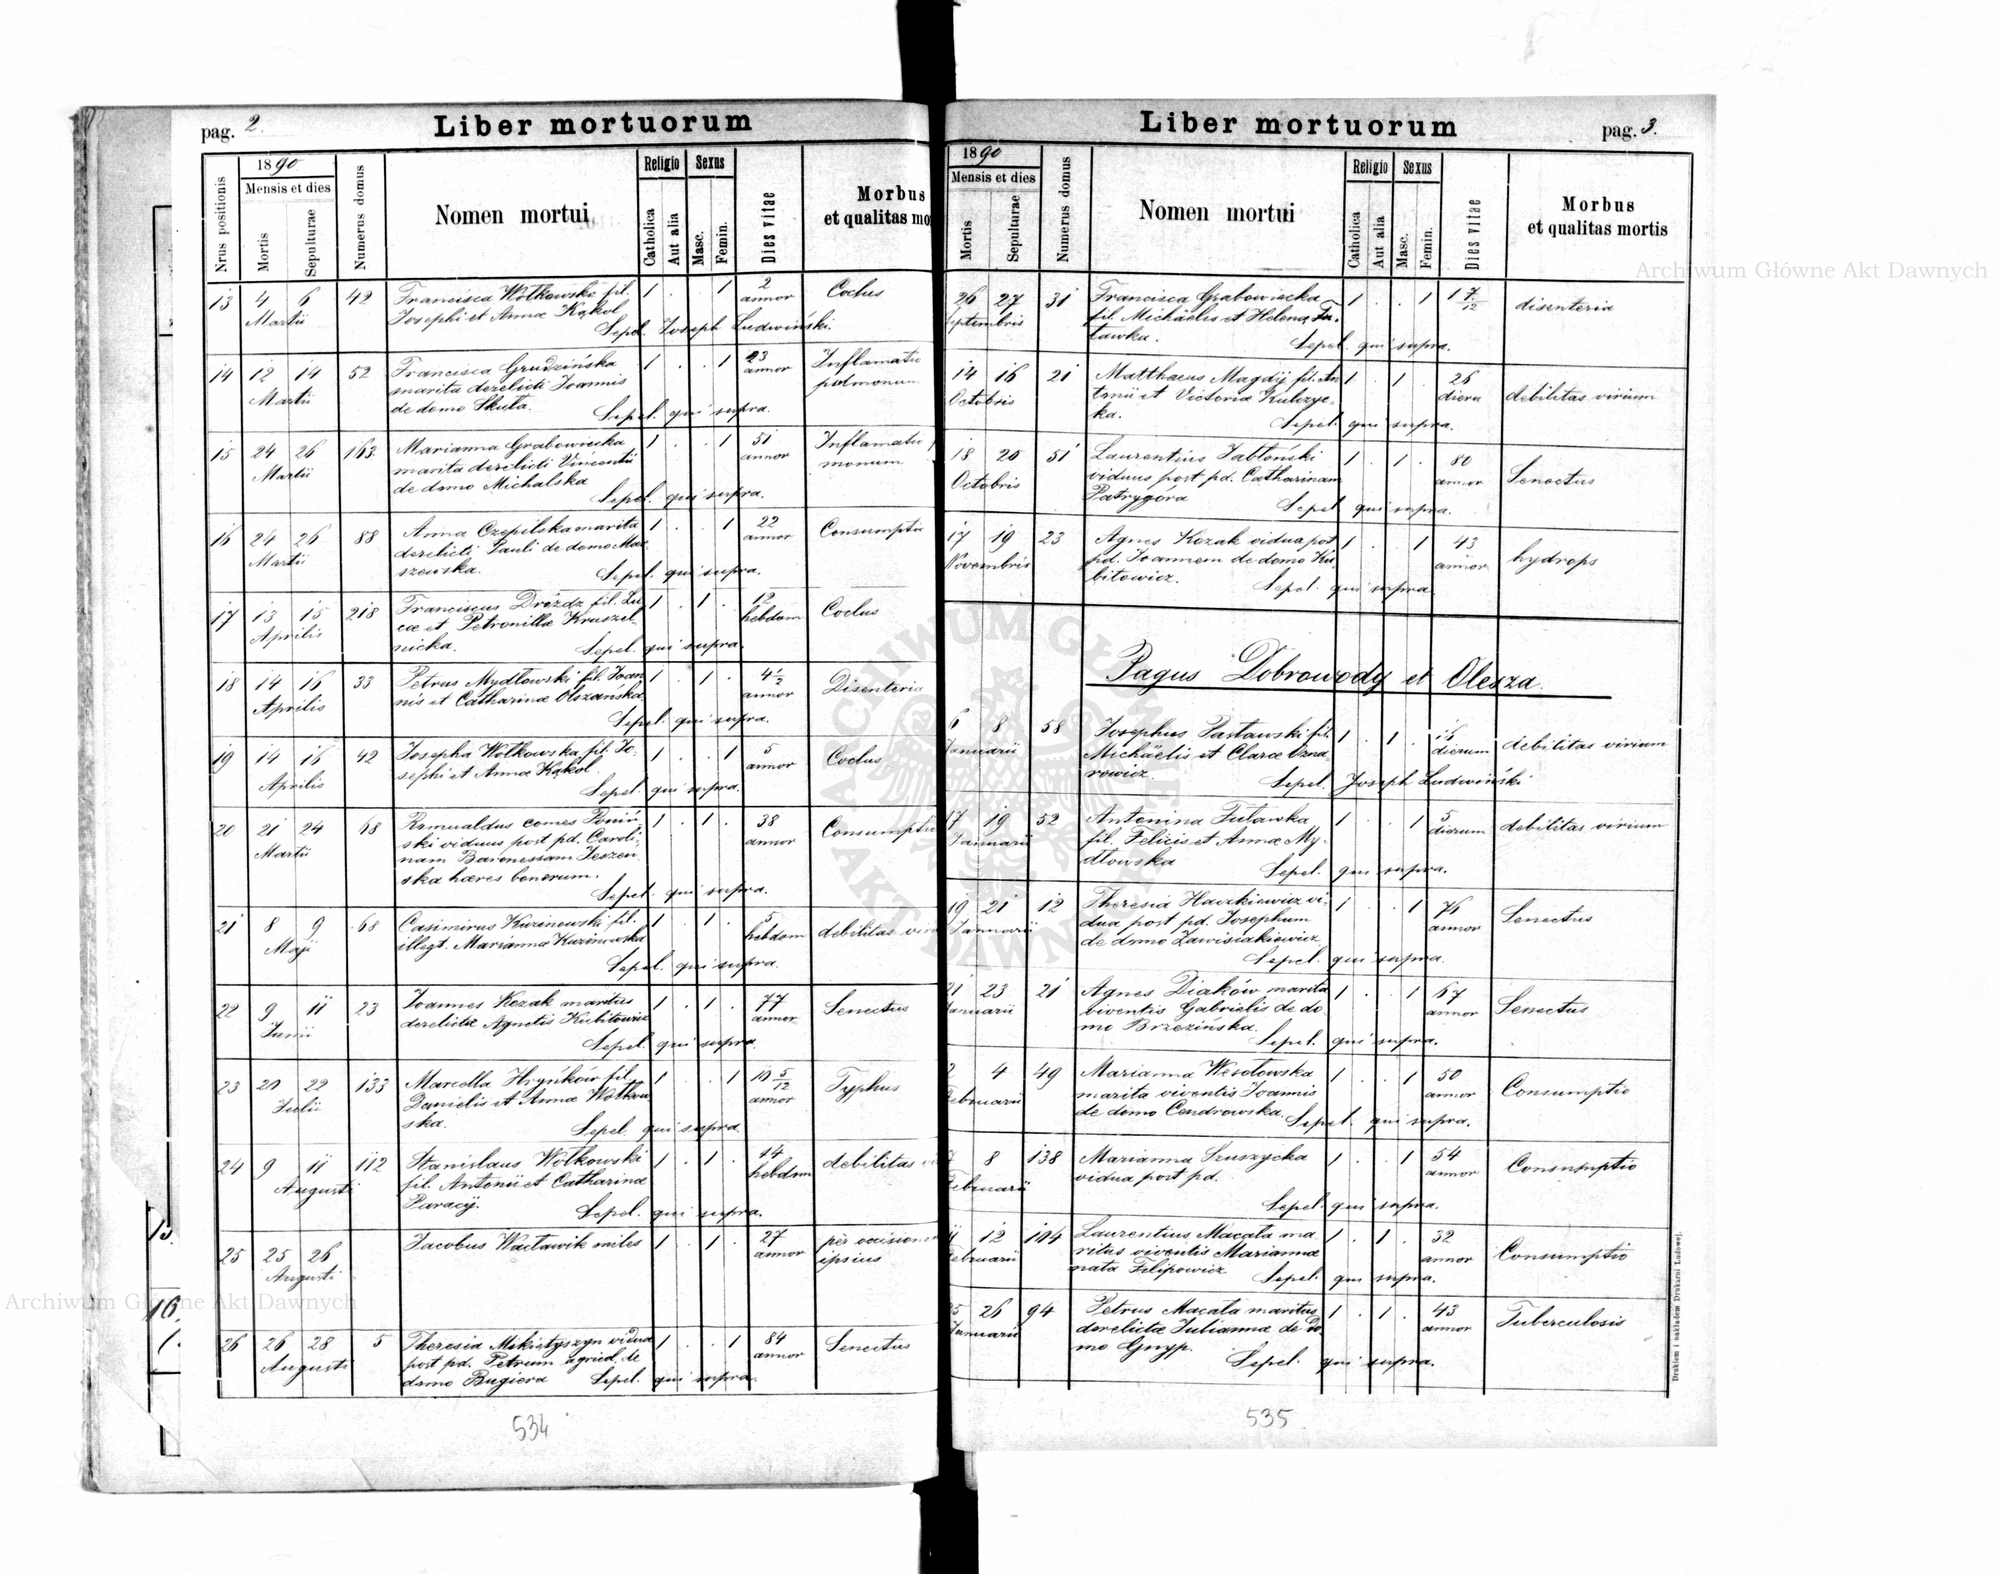 pag. 2.
Liber mortuorum
Nrus positionis
1890
Mensis et dies
Mortis
Sepulturae
Numerus domus
Nomen mortui
Religio
Catholica
Aut alia
Sexus
Masc.
Femin.
Dies vitae
Morbus
et qualitas mo
13 4 6 42 Francisca Wołkowski fil. 1 . . 1 2 Coclus
Martii Josephi et Annæ Kąkol annor
Sepel. Joseph Ludwiński.
14 12 14 52 Francisca Grudzińska 1 . . 1 23 Inflamatio
Martii marita derelicti Joannis annor pulmonum
de domo Skuta.
Sepel. qui supra.
15 24 26 163 Marianna Grabowiecka 1 . . 1 51 Inflamatio
Martii marita derelicti Vincentii annor monum
de domo Michalska
Sepel. qui supra.
16 24 26 88 Anna Czepilska marita 1 . . 1 22 Consumptio
Martii derelicti Pauli de domo Mar annor
szewska.
Sepel. qui supra.
17 13 15 218 Franciscus Drózdz fil. Lu 1 . 1 . 12 Coclus
Aprilis cæ et Petronillæ Kruszel- hebdom
nicka.
Sepel. qui supra.
18 14 16 33 Petrus Mydłowski fil. Joan 1 . 1 . 4 1/2 Disenteria
Aprilis nis et Catharinæ Olszańska annor
Sepel. qui supra.
19 14 16 42 Josepha Wołkowska fil. Jo- 1 . . 1 5 Coclus
Aprilis sephi et Annæ Kąkol. annor
Sepel. qui supra.
20 21 24 68 Romualdus comes Poniń 1 . 1 . 38 Consumptio
Martii ski viduus post pd. Caroli- annor
nam Baronessam Jeszen
ska hæres bonorum.
Sepel. qui supra.
21 8 9 68 Casimirus Kuzinowski fil. 1 . 1 . 5 debilitas vir
Maji illegt. Marianna Kuzinowska hebdom
Sepel. qui supra.
22 9 11 23 Joannes Kozak maritus 1 . 1 . 77 Senectus
Junii derelictæ Agnetis Kubitowicz annor
Sepel. qui supra.
23 20 22 133 Marcella Hryńków fil. 1 . . 1 10 5/12 Typhus
Julii Danielis et Annæ Wołkow annor
ska.
Sepel. qui supra.
24 9 11 112 Stanislaus Wołkowski 1 . 1 . 14 debilitas
Augusti fil. Antonii et Catharinæ hebdom
Paracij.
Sepel. qui supra.
25 25 26 Jacobus Wacławik miles 1 . 1 . 27 per occisionem
Augusti annor ipsius
26 26 28 5 Theresia Mikietyszyn vidua 1 . . 1 84 Senectus
Augusti post pd. Petrum agricl. de annor
domo Bugiera Sepel. qui supra.
534
Liber mortuorum
pag. 3.
1890
Mensis et dies
Mortis
Sepulturae
Numerus domus
Nomen mortui
Religio
Catholica
Aut alia
Sexus
Masc.
Femin.
Dies vitae
Morbus
et qualitas mortis
26 27 31 Francisca Grabowiecka 1 . . 1 1 7/12 disenteria
Septembris fil. Michäelis et Helenæ Fu-
tawka.
Sepel. qui supra.
14 16 21 Matthaeus Magdij fil. An 1 . 1 . 26 debilitas virium
Octobris tonii et Victoriæ Kulczyc- dieru
ka.
Sepel. qui supra.
18 20 51 Laurentius Jabłoński 1 . 1 . 80 Senectus
Octobris viduus post pd. Catharinam annor
Patrygóra
Sepel. qui supra.
17 19 23 Agnes Kozak vidua post 1 . . 1 43 hydrops
Novembris pd. Joannem de domo Ku annor
bitowicz.
Sepel. qui supra
Pagus Dobrowody et Olesza.
6 8 58 Josephus Pasławski fil. 1 . 1 . 16 debilitas virium
Januarii Michäelis et Claræ Uzna dierum
rowicz.
Sepel. Joseph Ludwiński
17 19 52 Antonina Futawka 1 . . 1 5 debilitas virium
Januarii fil. Felicis et Annæ My- dierum
dłowska
Sepel. qui supra.
19 21 12 Theresia Haczkiewicz vi- 1 . . 1 76 Senectus
Januarii dua post pd. Josephum annor
de domo Zawisiakiewicz
Sepel. qui supra.
21 23 21 Agnes Diaków marita 1 . . 1 67 Senectus
Januarii viventis Gabrielis de do annor
mo Brzezińska.
Sepel. qui supra.
2 4 49 Marianna Wesołowska 1 . . 1 50 Consumptio
Februarii marita viventis Joannis annor
de domo Cendrowska. Sepel. qui supra.
7 8 138 Marianna Szuszycka 1 . . 1 54 Consumptio
Februarii vidua post pd. annor
Sepel. qui supra.
11 12 104 Laurentius Macała ma 1 . 1 . 32 Consumptio
Februarii ritus viventis Mariannæ annor
nata Filipowicz Sepel. qui supra.
25 26 94 Petrus Macała maritus 1 . 1 . 43 Tuberculosis
Januarii derelictæ Juliannæ de do annor
mo Gnyp.
Sepel. qui supra.
Drukiem i nakładem Drukarni Ludowej.
535
Archiwum Główne Akt Dawnych
Archiwum Główne Akt Dawnych
ARCHIWUM GŁÓWNE AKT DAWNYCH
15.
16.
1.